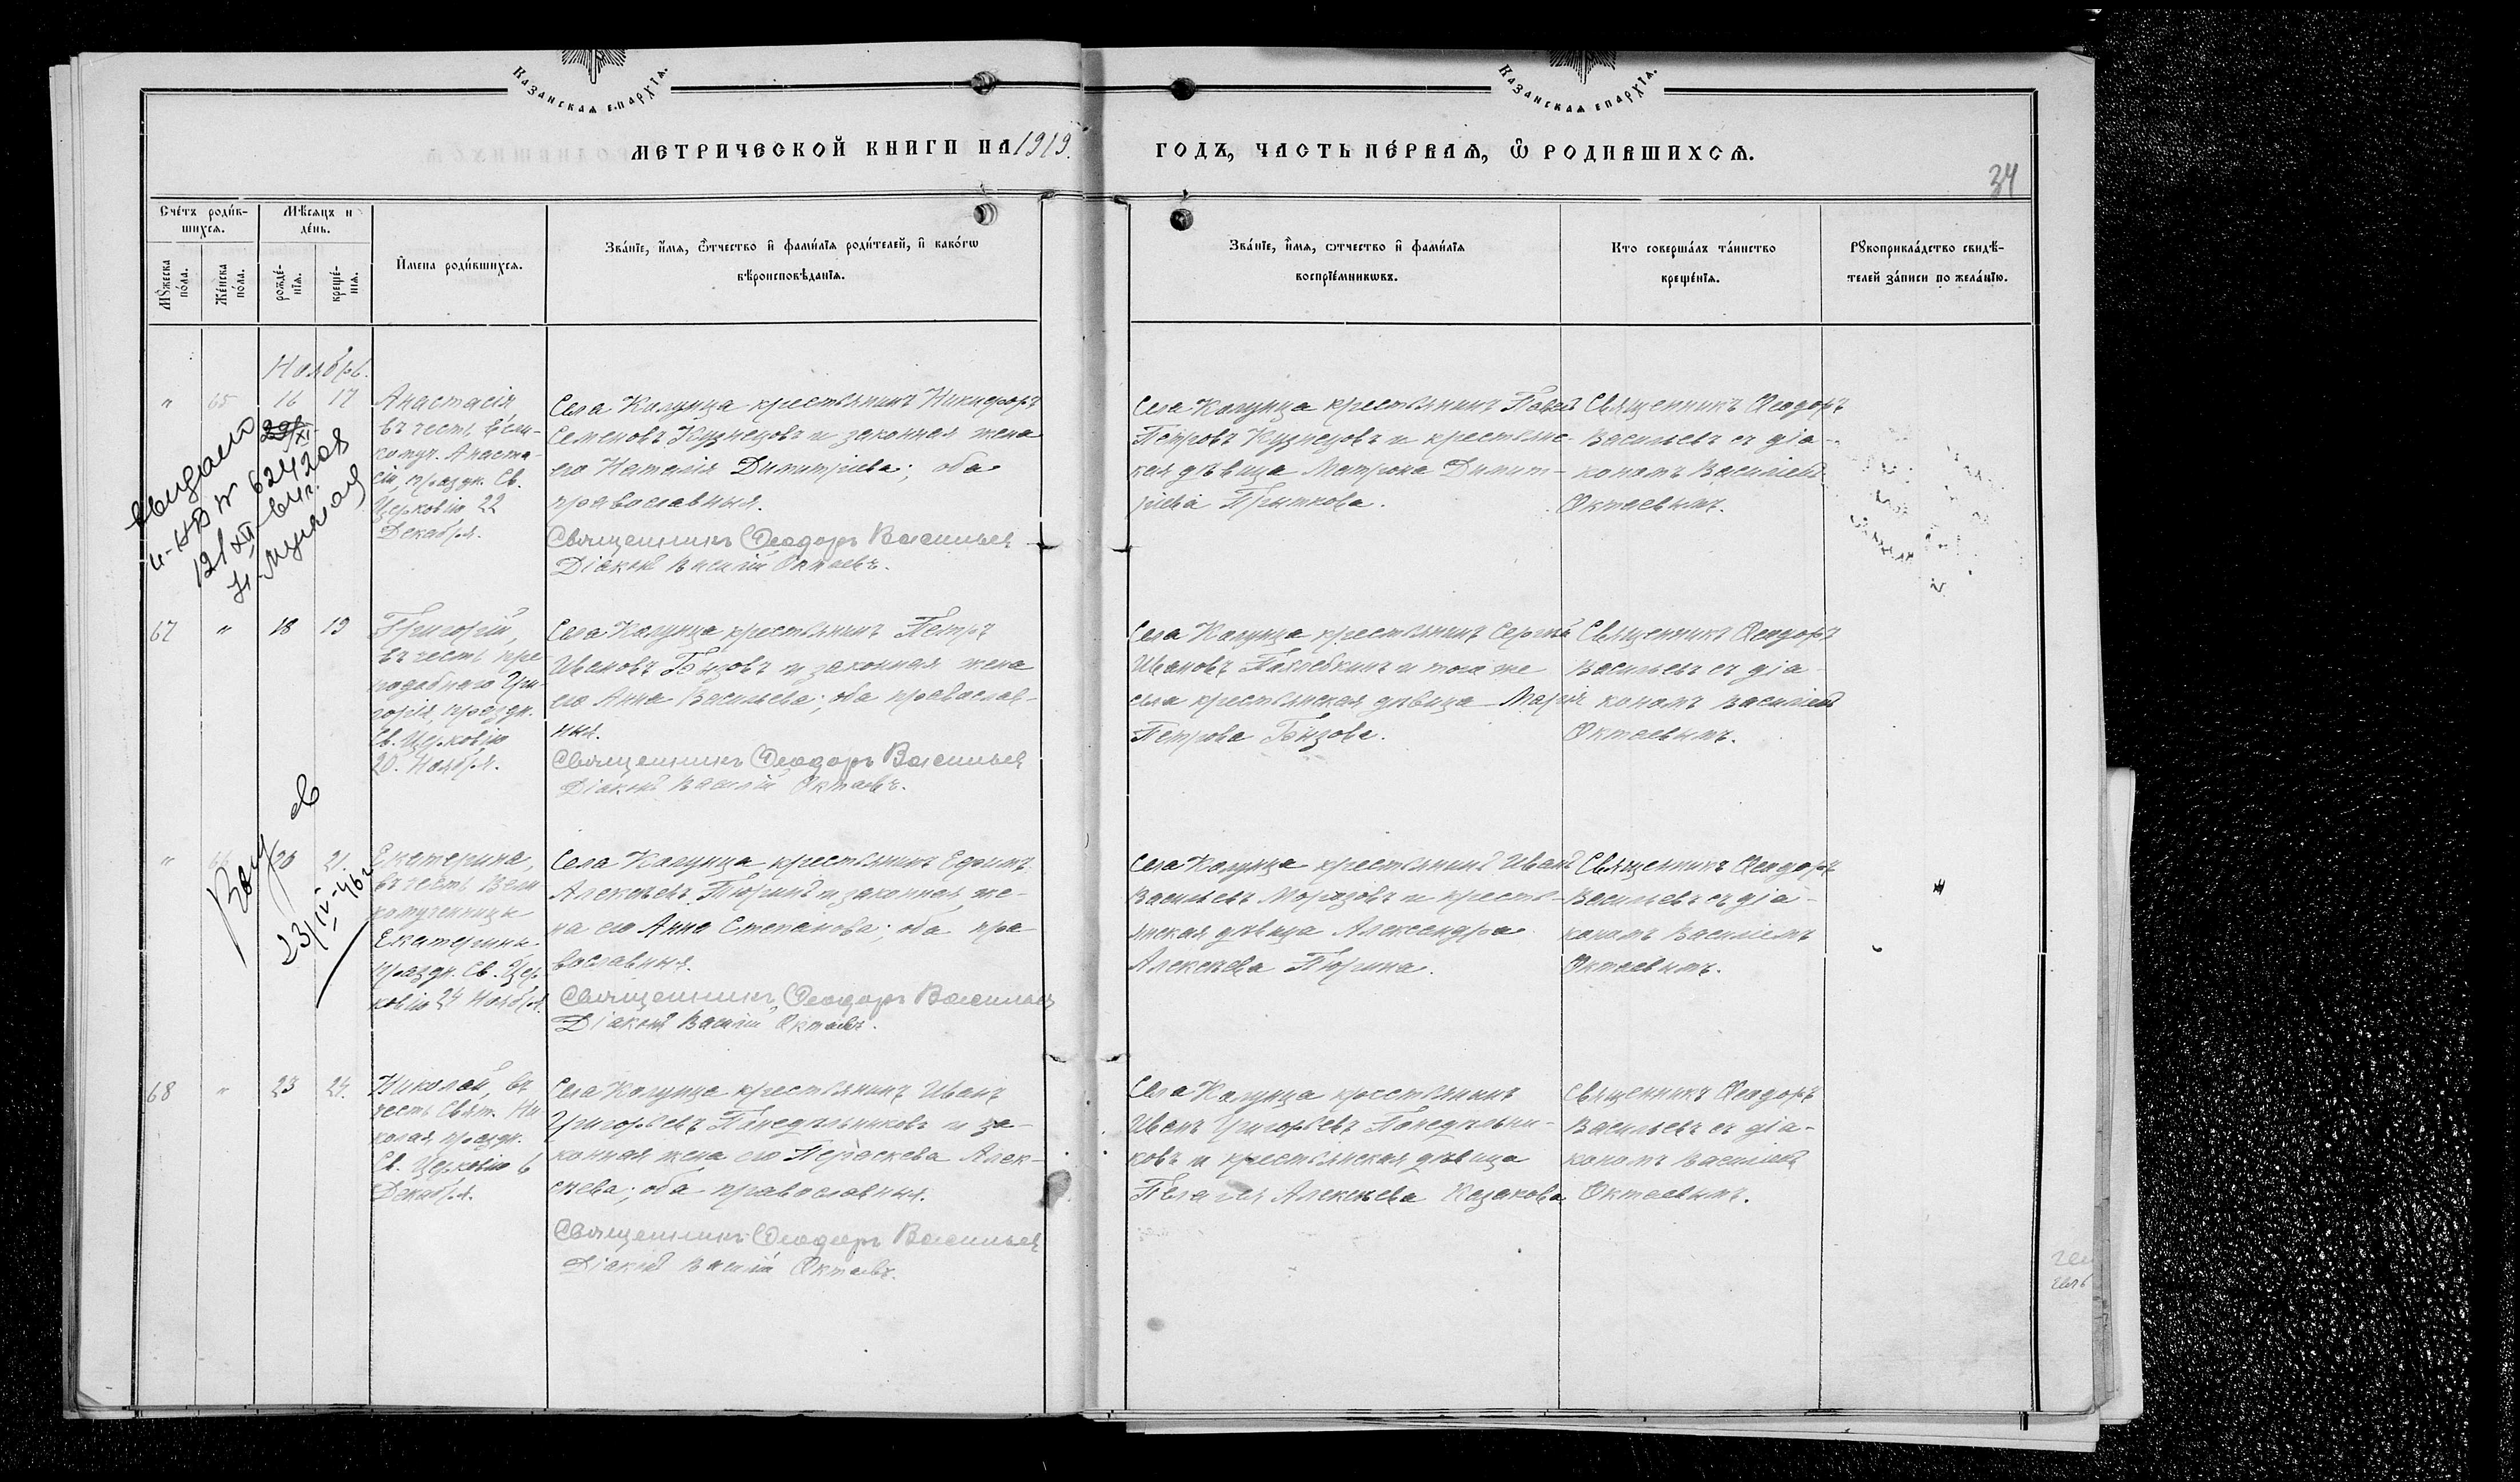 Казанская епархїя.
Казанская епархїя.
Метрической книги на 1919.
годъ, часть пе́рвая, ѡ҆ родившихся.
34
Сче́тъ роди́в-
шихся.
Мѣсяцъ и
де́нь.
И҆мена роди́вшихся.
Зва́нїе, и҆́мя, ѻ҆́тчество и҆ фами́лїя роди́телей, и҆ како́гѡ
вѣроисповѣ́данїя.
Мꙋ́жеска
по́ла.
Же́нска
по́ла.
рожде́-
нїя.
креще́-
нїя.
Зва́нїе, и҆́мя, ѻтчество и҆ фами́лїя
воспрїе́мникѡвъ.
Кто соверша́лъ та́инство
креще́нїя.
Рꙋкоприкла́дство свидѣ́-
телей за́писи по жела́нїю.
Ноябрь.
" 65 16 17
Анастасія,
въ честь Вели-
комуч. Анаста-
сіи, праздн. Св.
Церковію 22
Декабря.
Села Калунца крестьянинъ Никифоръ
Семеновъ Кузнецовъ и законная жена
его Наталія Димитріева; оба
православные.
Священникъ Ѳеодоръ Васильев
Діаконъ Василій Октаевъ.
Села Калунца крестьянинъ Павел
Петровъ Кузнецовъ и крестьянс-
кая дѣвица Матрона Димит-
ріева Прыткова.
Священникъ Ѳеодоръ
Васильевъ съ діа-
кономъ Василіем
Октаевымъ.
67 " 18 19
Григорій,
въ честь пре-
подобнаго Гри-
горія, праздн.
Св. Церковію
20. Ноября.
Села Калунца крестьянинъ Петръ
Ивановъ Бызовъ и законная жена
его Анна Васильева; оба православ-
ные.
Священникъ Ѳеодоръ Васильев
Діаконъ Василій Октаевъ.
Села Калунца крестьянинъ Сергѣй
Ивановъ и того же
села крестьянская дѣвица Марія
Петрова Бызова.
Священникъ Ѳеодоръ
Васильевъ съ діа-
кономъ Василіем
Октаевымъ.
23/IV-46г
" 66 20 21.
Екатерина,
въ честь Вели-
комученицы
Екатерины
праздн. Св. Цер-
ковію 24 Ноября.
Села Калунца крестьянинъ Ефимъ
Алексѣевъ Тюринъ и законная же-
на его Анна Степанова; оба пра-
вославные.
Священникъ Ѳеодоръ Васильев
Діаконъ Василій Октаевъ.
Села Калунца крестьянинъ Иванъ
Васильевъ Морозовъ и кресть-
янская дѣвица Александра
Алексѣева Тюрина.
Священникъ Ѳеодоръ
Васильевъ съ діа-
кономъ Василіемъ
Октаевымъ.
68 " 23 24.
Николай, въ
честь Свят. Ни-
колая, праздн.
Св. Церковію 6
Декабря.
Села Калунца крестьянинъ Иванъ
Григорьевъ Понедѣльниковъ и за-
конная жена его Параскева Алек-
сѣева; оба православные.
Священникъ Ѳеодоръ Васильев
Діаконъ Василій Октаевъ.
Села Калунца крестьянинъ
Иванъ Григорьевъ Понедѣльни-
ковъ и крестьянская дѣвица
Пелагея Алексѣева Казакова
Священникъ Ѳеодоръ
Васильевъ съ діа-
кономъ Василіем
Октаевымъ.